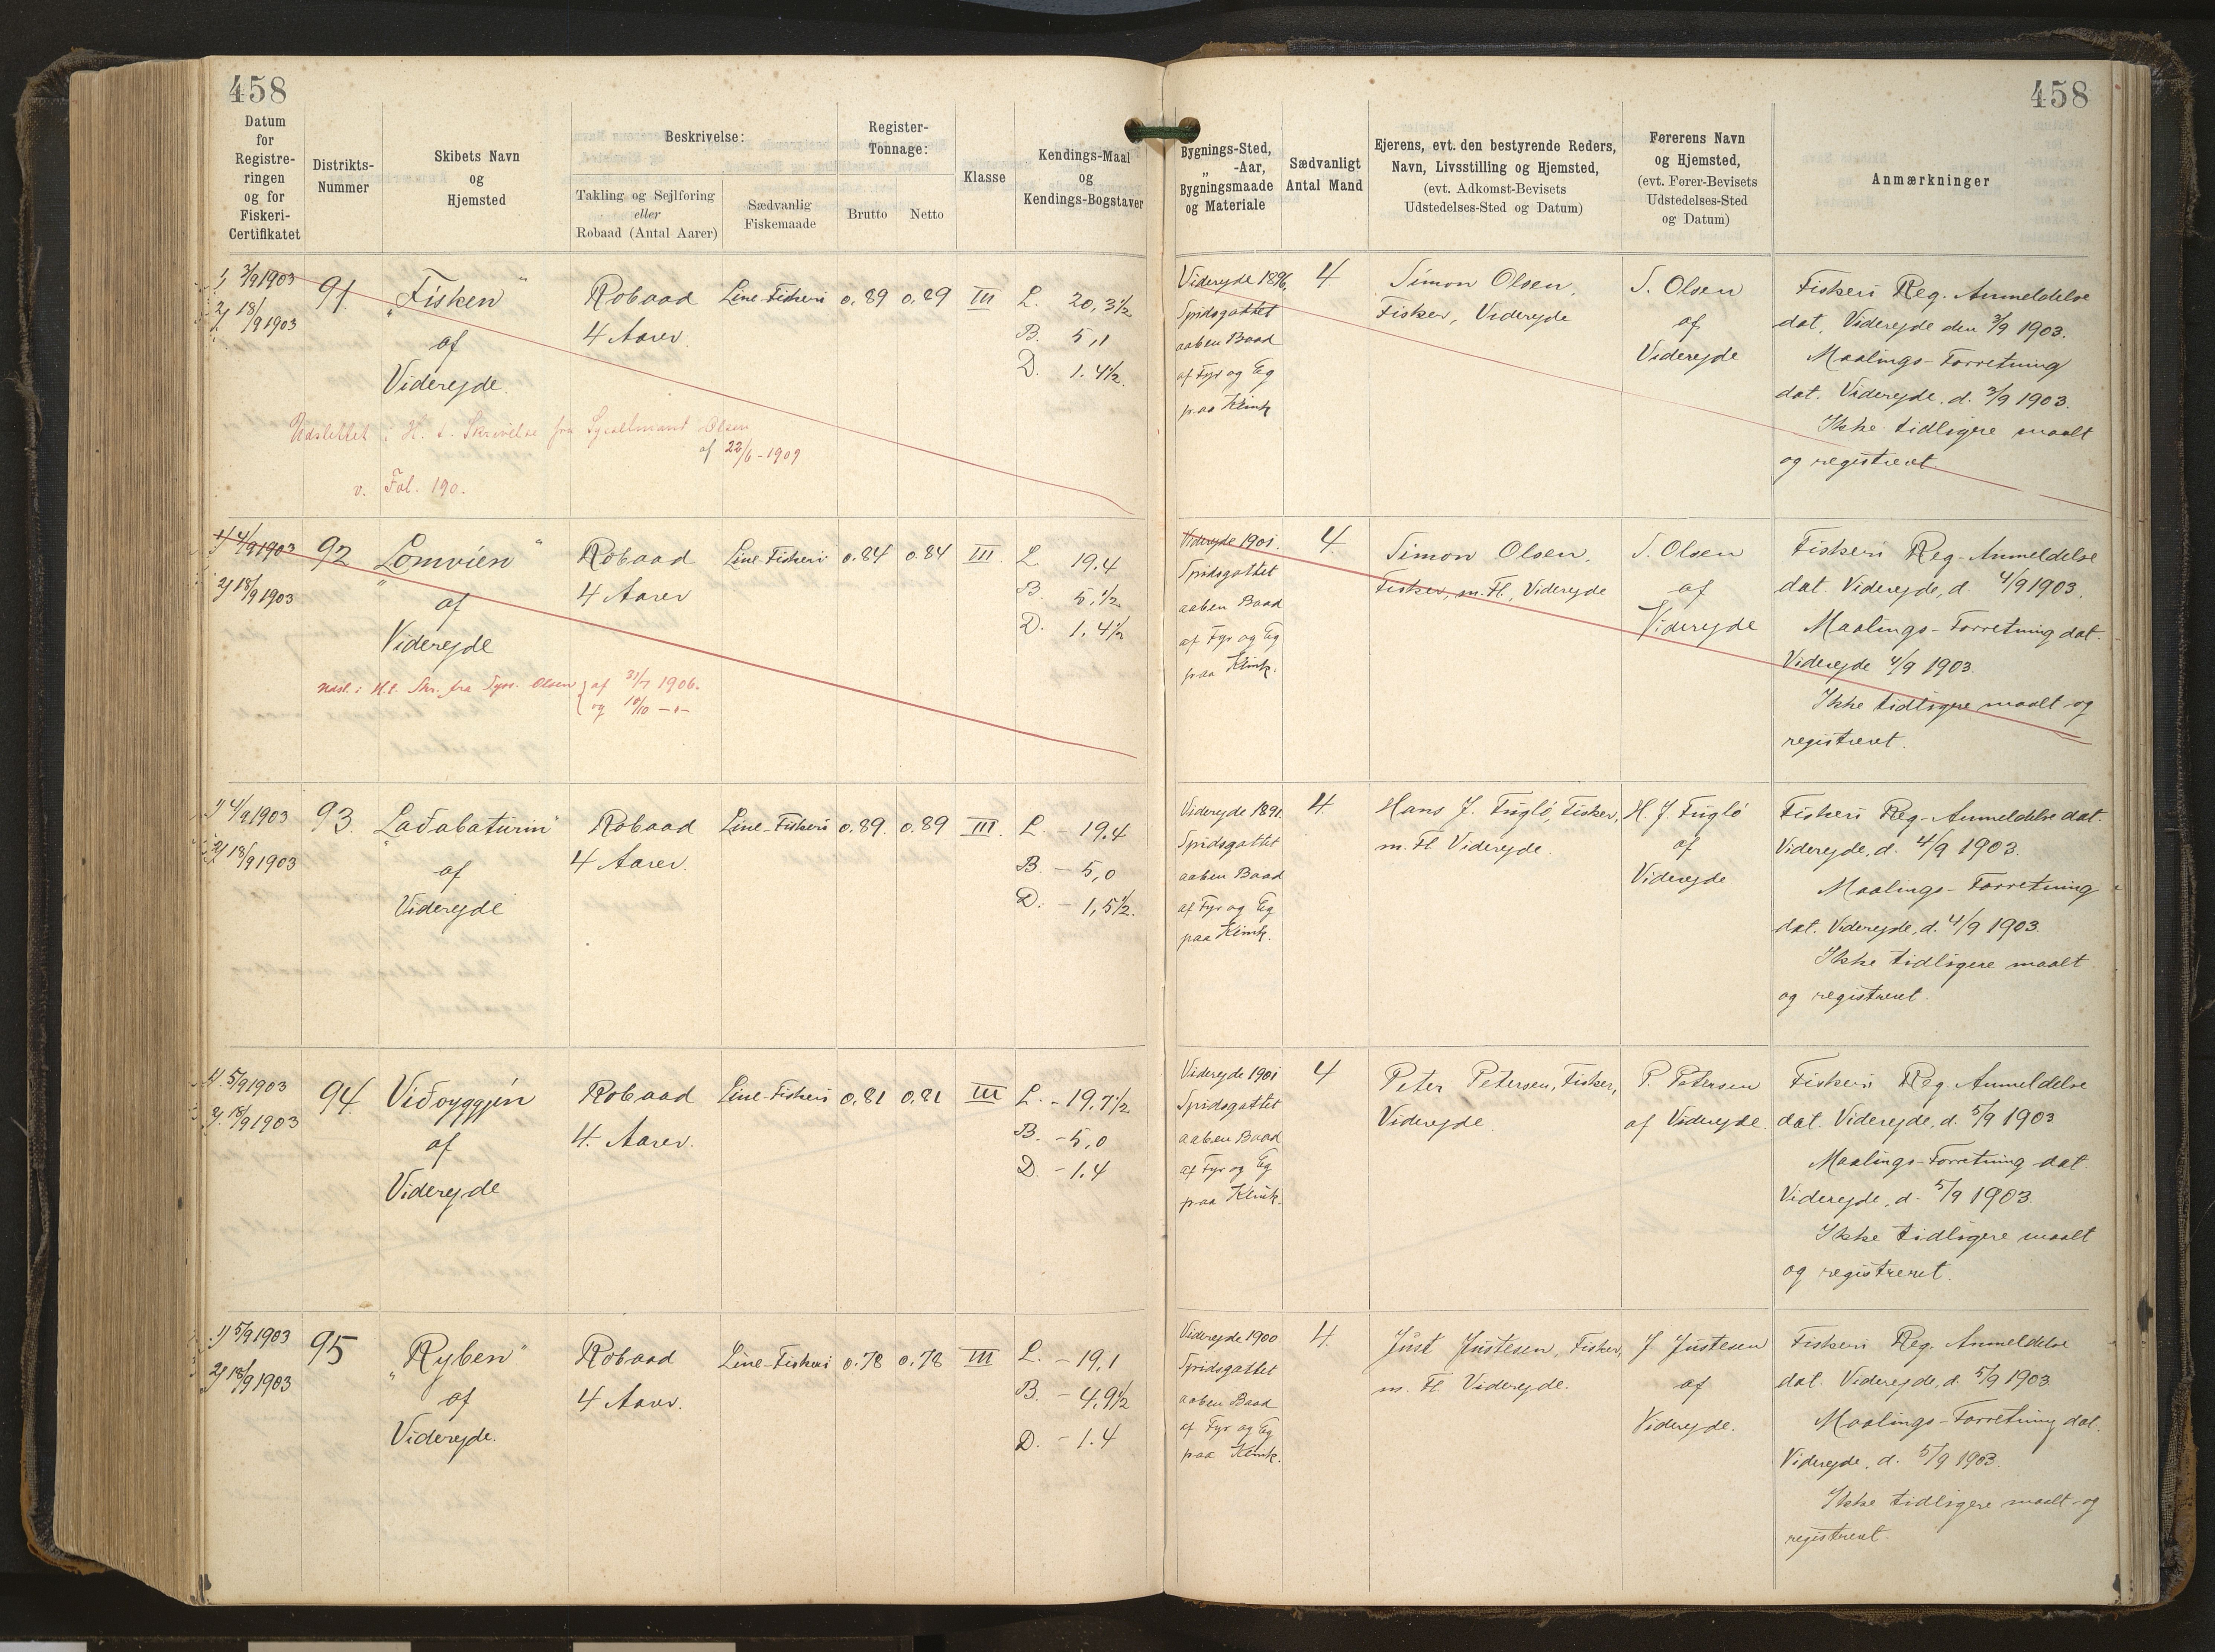 458
458
Datum
for
Registre-
ringen
og for
Fiskeri-
Certifikatet
Distrikts-
Nummer
Skibets Navn
og
Hjemsted
Beskrivelse:
Takling og Sejlføring
eller
Robaad (Antal Aarer)
Sædvanlig
Fiskemaade
Register-
Tonnage:
Brutto
Netto
Klasse
Kendings-Maal
og
Kendings-Bogstaver
Bygnings-Sted,
„ -Aar,
Bygningsmaade
og Materiale
Sædvanligt
Antal Mand
Ejerens, evt. den bestyrende Reders,
Navn, Livsstilling og Hjemsted,
(evt. Adkomst-Bevisets
Udstedelses-Sted og Datum)
Førerens Navn
og Hjemsted,
(evt. Fører-Bevisets
Udstedelses-Sted
og Datum)
Anmærkninger
1, 3/9 1903
2, 18/9 1903
91.
„Fisken"
af
Viderejde.
Robaad
4 Aarer.
Line-Fiskeri
0,89
0,89
III
L. 20,3½
B. 5,1
D. 1,4½.
Viderejde 1896,
Spidsgattet
aaben Baad
af Fyr og Eg
paa Klink
4
Simon Olsen,
Fisker, Viderejde
S. Olsen
af
Viderejde
Fiskeri Reg. Anmeldelse
dat. Viderejde den 3/9 1903.
Maalings-Forretning
dat. Viderejde, d. 3/9 1903.
Ikke tidligere maalt
og registreret.
Udslettet i H. t. Skrivelse fra Sysselmand Olsen
af 22/6-1909
v. Fol. 190.
1) 4/9 1903
2) 18/9 1903
92
„Lomvien"
af
Viderejde
Robaad
4 Aarer
Line-Fiskeri
0.84
0,84
III.
L. 19,4
B. 5,½
D. 1,4½
Viderejde 1901.
Spidsgattet
aaben Baad
af Fyr og Eg
paa Klink.
4.
Simon Olsen,
Fisker, m. Fl., Viderejde
S. Olsen
af
Viderejde
Fiskeri Reg.-Anmeldelse
dat. Viderejde, d. 4/9 1903.
Maalings-Forretning dat.
Viderejde 4/9 1903.
Ikke tidligere maalt og
registreret.
Udsl. i H.t. Skr. fra Syss. Olsen af 31/7 1906.
og 10/10 -"-
1) 4/9 1903
2) 18/9 1903
93.
„Laðabaturin"
af
Viderejde
Robaad
4 Aarer.
Line-Fiskeri
0.89.
0,89
III.
L. - 19,4
B. - 5,0
D. - 1,5½.
Viderejde 1891.
Spidsgattet
aaben Baad
af Fyr og Eg
paa Klink.
4.
Hans J. Fugló, Fisker,
m. Fl. Viderejde.
H. J. Fugló
af
Viderejde
Fiskeri Reg.-Anmeldelse dat.
Viderejde, d. 4/9 1903.
Maalings-Forretning
dat. Viderejde, d. 4/9 1903.
Ikke tidligere maalt
og registreret.
1). 5/9 1903
2). 18/9 1903
94.
Viðoyggjin
af
Viderejde
Robaad
4. Aarer.
Line-Fiskeri
0,81
0,81
III
L. - 19,7½
B. - 5,0
D. - 1.4
Viderejde 1901
Spidsgattet
aaben Baad
af Fyr og Eg
paa Klink.
4
Peter Petersen, Fisker,
Viderejde.
P. Petersen
af Viderejde.
Fiskeri Reg. Anmeldelse
dat. Viderejde, d. 5/9 1903
Maalings-Forretning dat.
Viderejde, d. 5/9 1903.
Ikke tidligere maalt
og registreret.
1) 5/9 1903
2) 18/9 1903
95
„Ryben"
af
Viderejde.
Robaad
4 Aarer.
Line-Fiskeri
0.78
0,78
III
L. - 19,1
B. - 4,9½
D. - 1.4
Viderejde 1900
Spidsgattet
aaben Baad
af Fyr og Eg
paa Klink.
4.
Just Justesen, Fisker,
m. Fl. Viderejde.
J Justesen
af
Viderejde.
Fiskeri Reg. Anmeldelse
dat. Viderejde, d. 5/9 1903
Maalings-Forretning dat.
Viderejde, d. 5/9 1903.
Ikke tidligere maalt og
registreret.